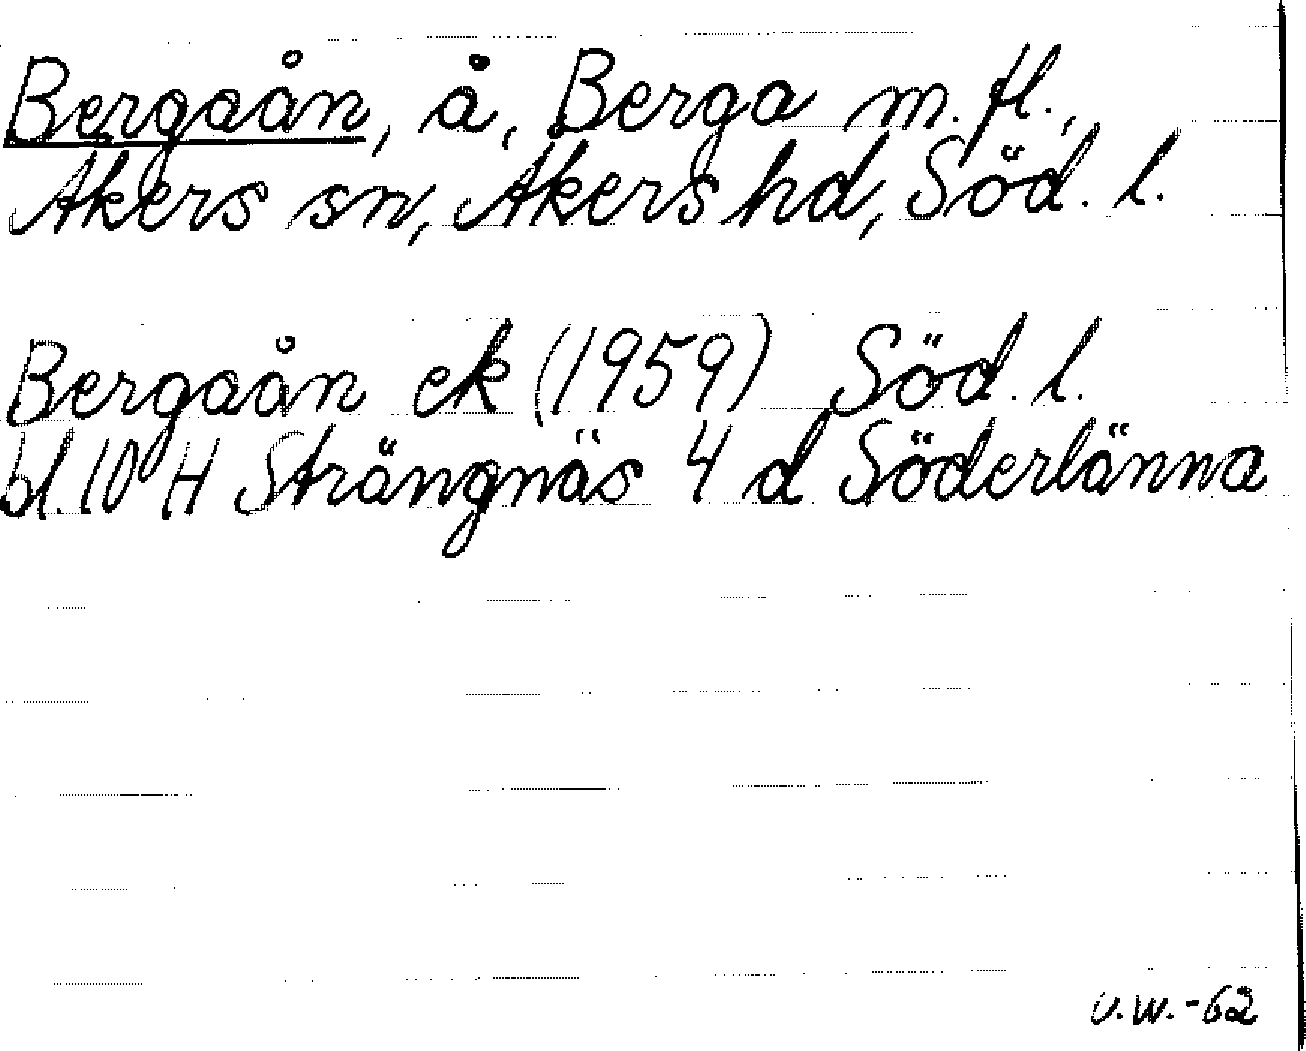 Bergaån, å, Berga m. fl.,
Åkers sn, Åkers hd, Söd. l.
Bergaån ek (1959) Söd. l.
bl. 10 H Strängnäs 4 d Söderlänna
v.w.-62